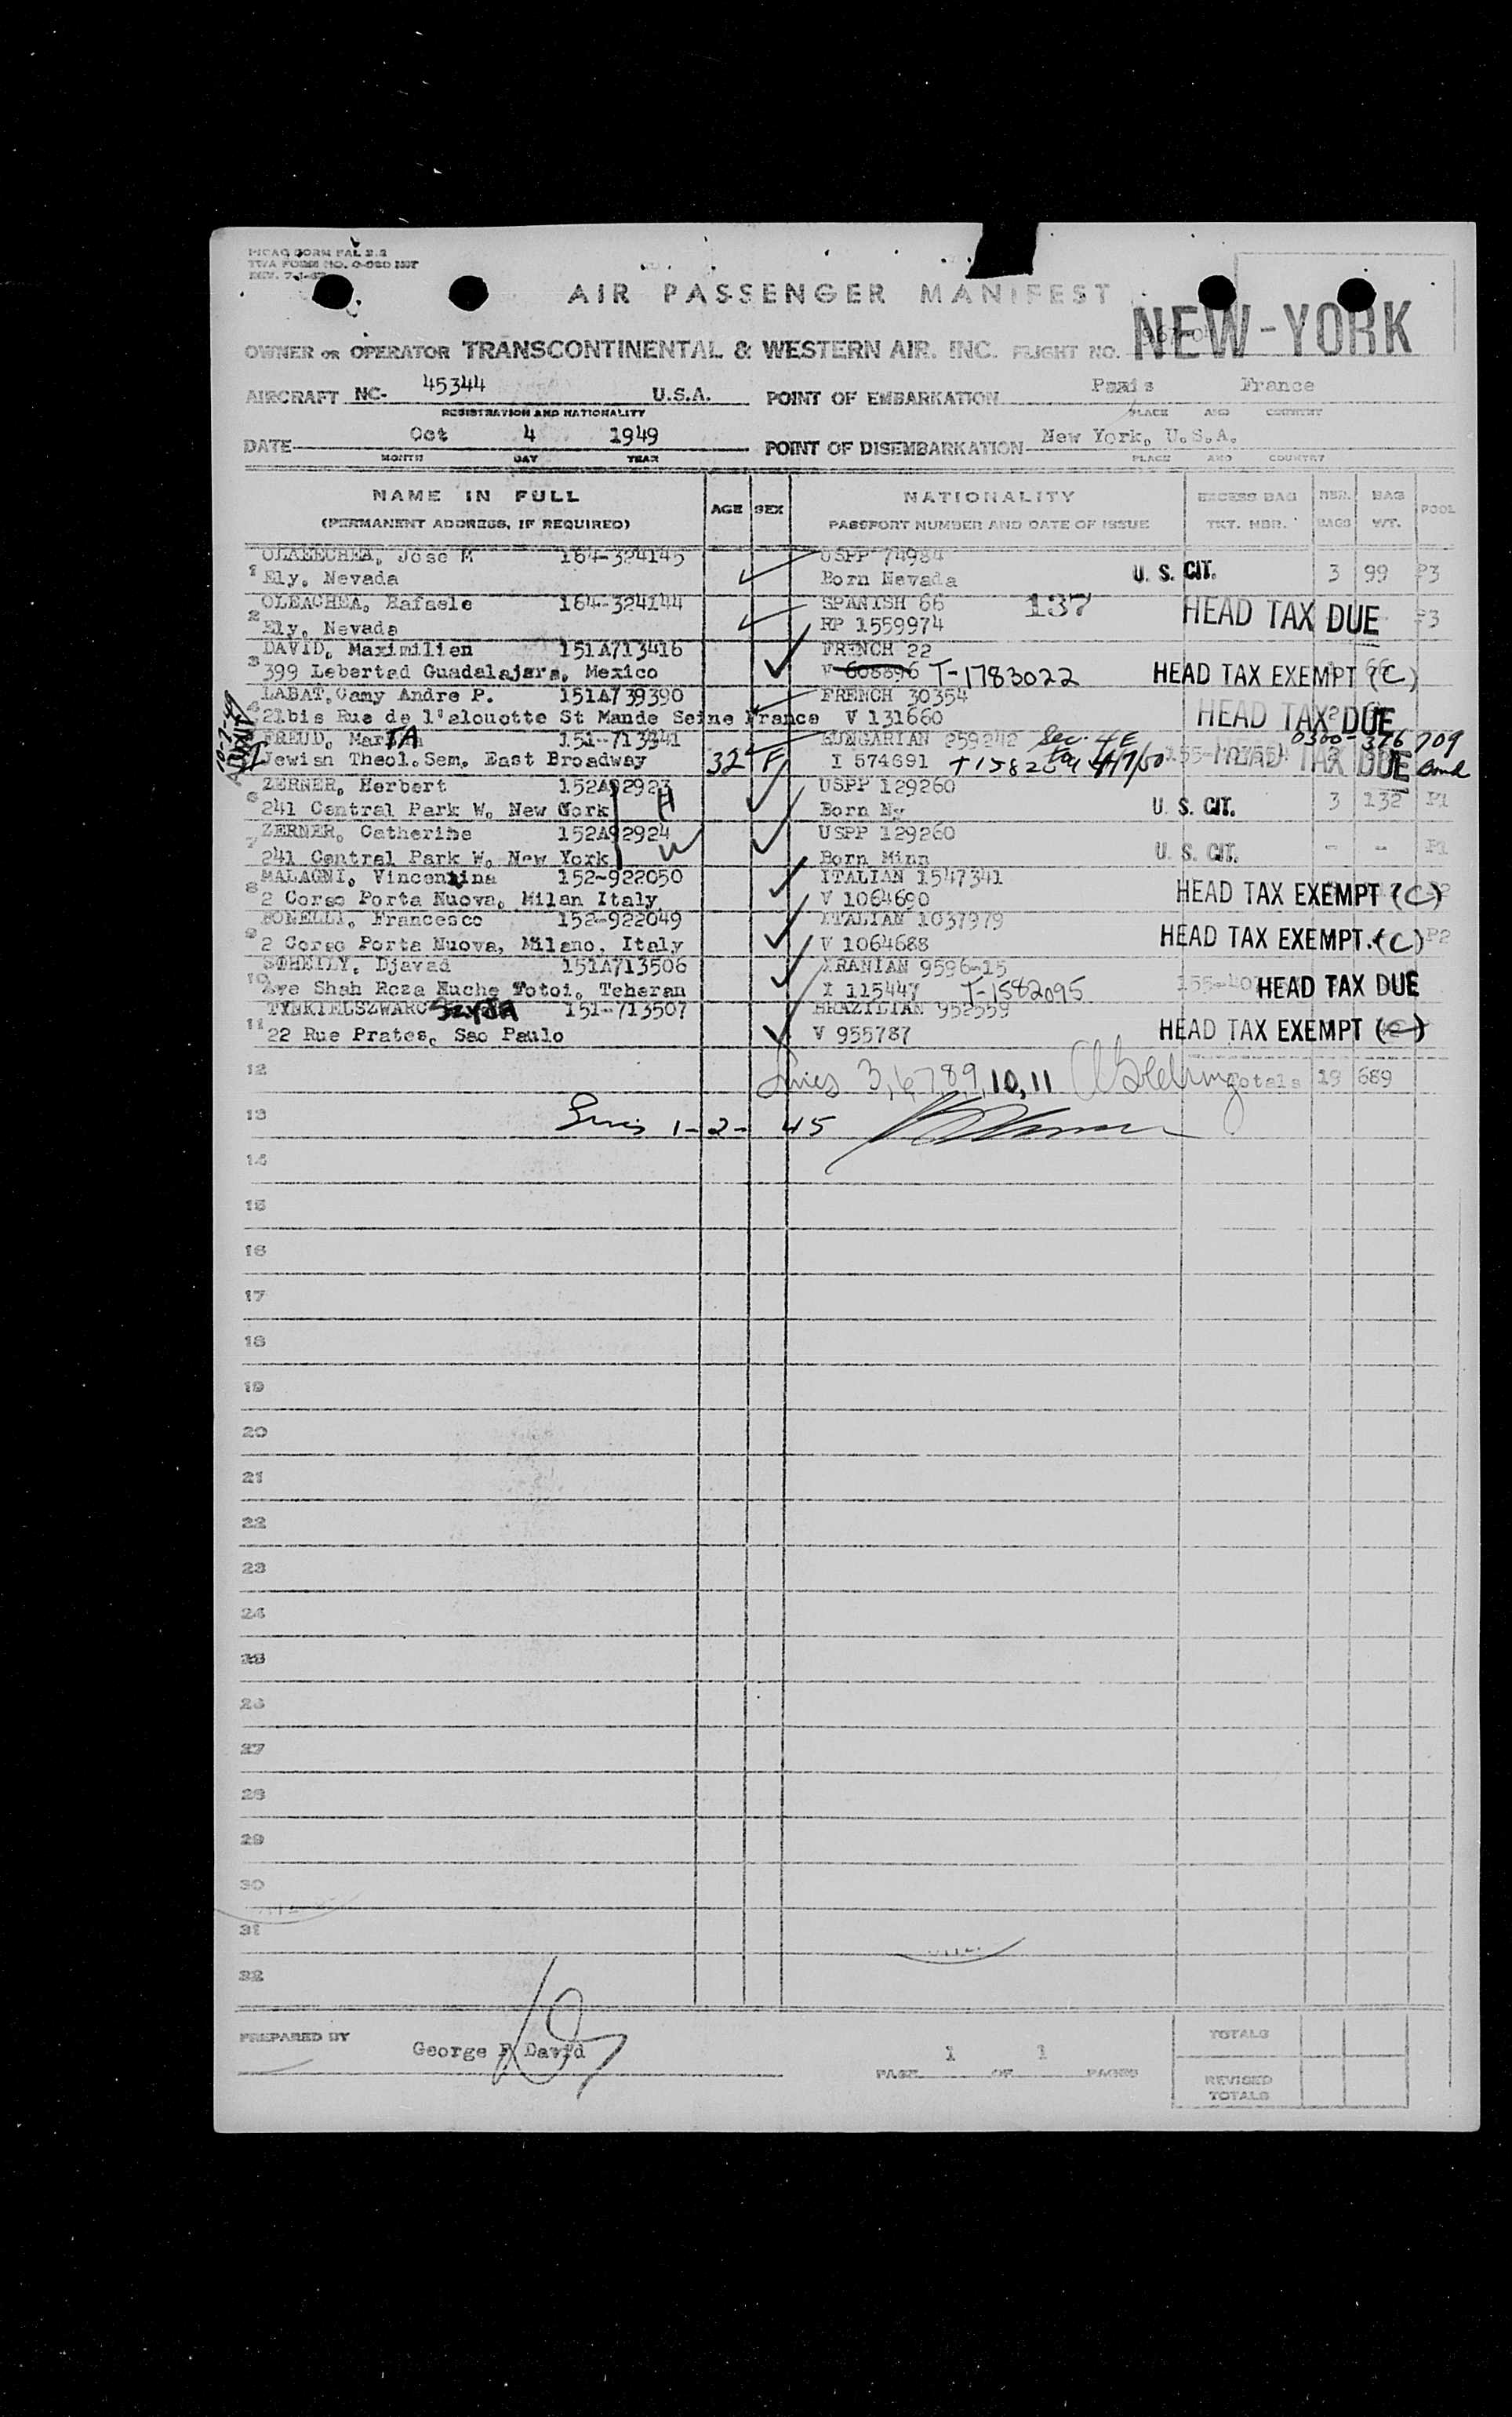 PICAO FORM FAL 2.2
TWA FORM NO. O-020 INT
REV. 7-1-47
AIR PASSENGER MANIFEST
OWNER OR OPERATOR TRANSCONTINENTAL & WESTERN AIR. INC. FLIGHT NO. NEW-YORK
AIRCRAFT NC- 45344 U.S.A. POINT OF EMBARKATION Paris France
REGISTRATION AND NATIONALITY PLACE AND COUNTRY
DATE Oct 4 1949 POINT OF DISEMBARKATION New York, U.S.A.
MONTH DAY YEAR PLACE AND COUNTRY
NAME IN FULL AGE SEX NATIONALITY EXCESS BAG NBR. BAG POOL
(PERMANENT ADDRESS, IF REQUIRED) PASSPORT NUMBER AND DATE OF ISSUE TKT. NBR. BAGS WT.
OLAEECHEA, Jose M 164-324145 USPP 74984
1 Ely, Nevada Born Nevada U. S. CIT. 3 99 P3
OLEACHEA, Rafaele 164-324144 SPANISH 66 137 HEAD TAX DUE
2 Ely, Nevada RP 1559974 P3
DAVID, Maximilien 151A713416 FRENCH 22
3 399 Lebertad Guadalajara, Mexico V 608896 T-1783022 HEAD TAX EXEMPT (C)
LABAT, Camy Andre P. 151A739390 FRENCH 30354
4 21bis Rue de l'alouotte St Mande Seine France V 131660 HEAD TAX DUE
FREUD, MarTA 151-713341 HUNGARIAN 259242 Sec. 4E 0300-376709
Jewish Theol.Sem. East Broadway 32 F I 574691 HEAD TAX DUE
ZERNER, Herbert 152A92923 H USPP 129260
6 241 Central Park W, New York Born Ny U. S. CIT. 3 132 P1
ZERNER, Catherine 152A92924 W USPP 129260
7 241 Central Park W, New York Born Minn U. S. CIT. - - P1
MALAGNI, Vincenzina 152-922050 ITALIAN 1547341
8 2 Corso Porta Nuova, Milan Italy V 1064690 HEAD TAX EXEMPT (C)
BONELLI, Francesco 152-922049 ITALIAN 1037979
9 2 Corso Porta Nuova, Milano, Italy V 1064688 HEAD TAX EXEMPT. (C) P2
SOHEILY, Djavad 151A713506 IRANIAN 9596-15
10 Ave Shah Reza Kuche Totoi, Teheran I 115447 T-1582095 HEAD TAX DUE
TYNKIELSZWARC Szyja 151-713507 BRAZILIAN 952559
11 22 Rue Prates, Sao Paulo V 955787 HEAD TAX EXEMPT (C)
12 Lines 3,6,7,8,9,10,11 Totals 19 689
13 Lines 1-2- 45
14
15
16
17
18
19
20
21
22
23
24
25
26
27
28
29
30
31
32
PREPARED BY George F David TOTALS
PAGE 1 OF 1 PAGES
REVISED
TOTALS